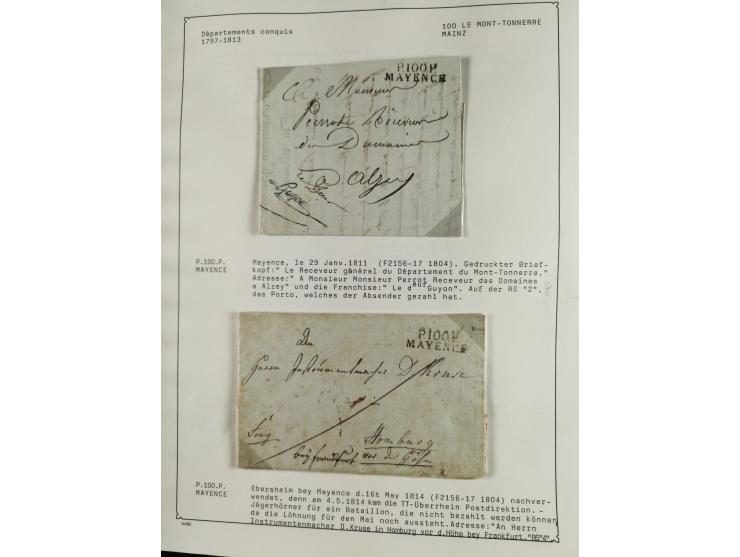 Départements conquis
1797-1813
100 LE MONT-TONNERRE
MAINZ
P.100.P.
MAYENCE
A Monsieur
Perrot Receveur
des Domaines
a Alzey
Guyon
P.100.P.
MAYENCE
Mayence, le 29 Janv.1811 (F2156-17 1804). Gedruckter Brief-
kopf:" Le Receveur général du Département du Mont-Tonnerre,"
Adresse:" A Monsieur Monsieur Perrot Receveur das Domaines
a Alzey" und die Franchise:" Le deur Guyon". Auf der RS "2",
das Porto, welches der Absender gezahl hat.
P.100.P.
MAYENCE
An
Herrn Instrumentmacher D. Kruse
Homburg
bey Frankfurt vor der Höhe
P.100.P.
MAYENCE
Ebersheim bey Mayence d.16t May 1814 (F2156-17 1804) nachver-
wendet, denn am 4.5.1814 kam die TT-Überrhein Postdirektion. -
Jägerhörner für ein Bataillon, die nicht bezahlt werden können
da die Löhnung für den Mai noch aussteht.Adresse:"An Herrn
Instrumentenmacher D.Kruse in Homburg vor d.Höhe bey Frankfurt."
KABE